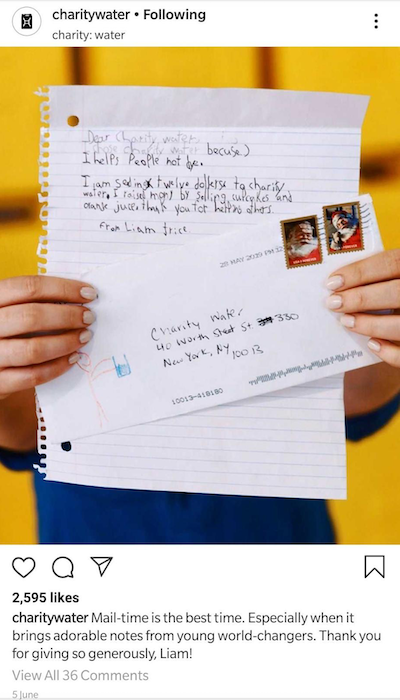 charitywater • Following
charity: water
Dear Charity water
I chose charity water becuse)
I helps People not die.
I am seding twelve dollerse to charity
water. I raised mony by selling cupcakes and
orange juice. thank you for helping others.
From Liam
28 MAY 2019 PM
USA FOREVER
Charity Water
40 Worth Street St. 330
New York, NY 10013
10013-418180
2,595 likes
charitywater Mail-time is the best time. Especially when it
brings adorable notes from young world-changers. Thank you
for giving so generously, Liam!
View All 36 Comments
5 June